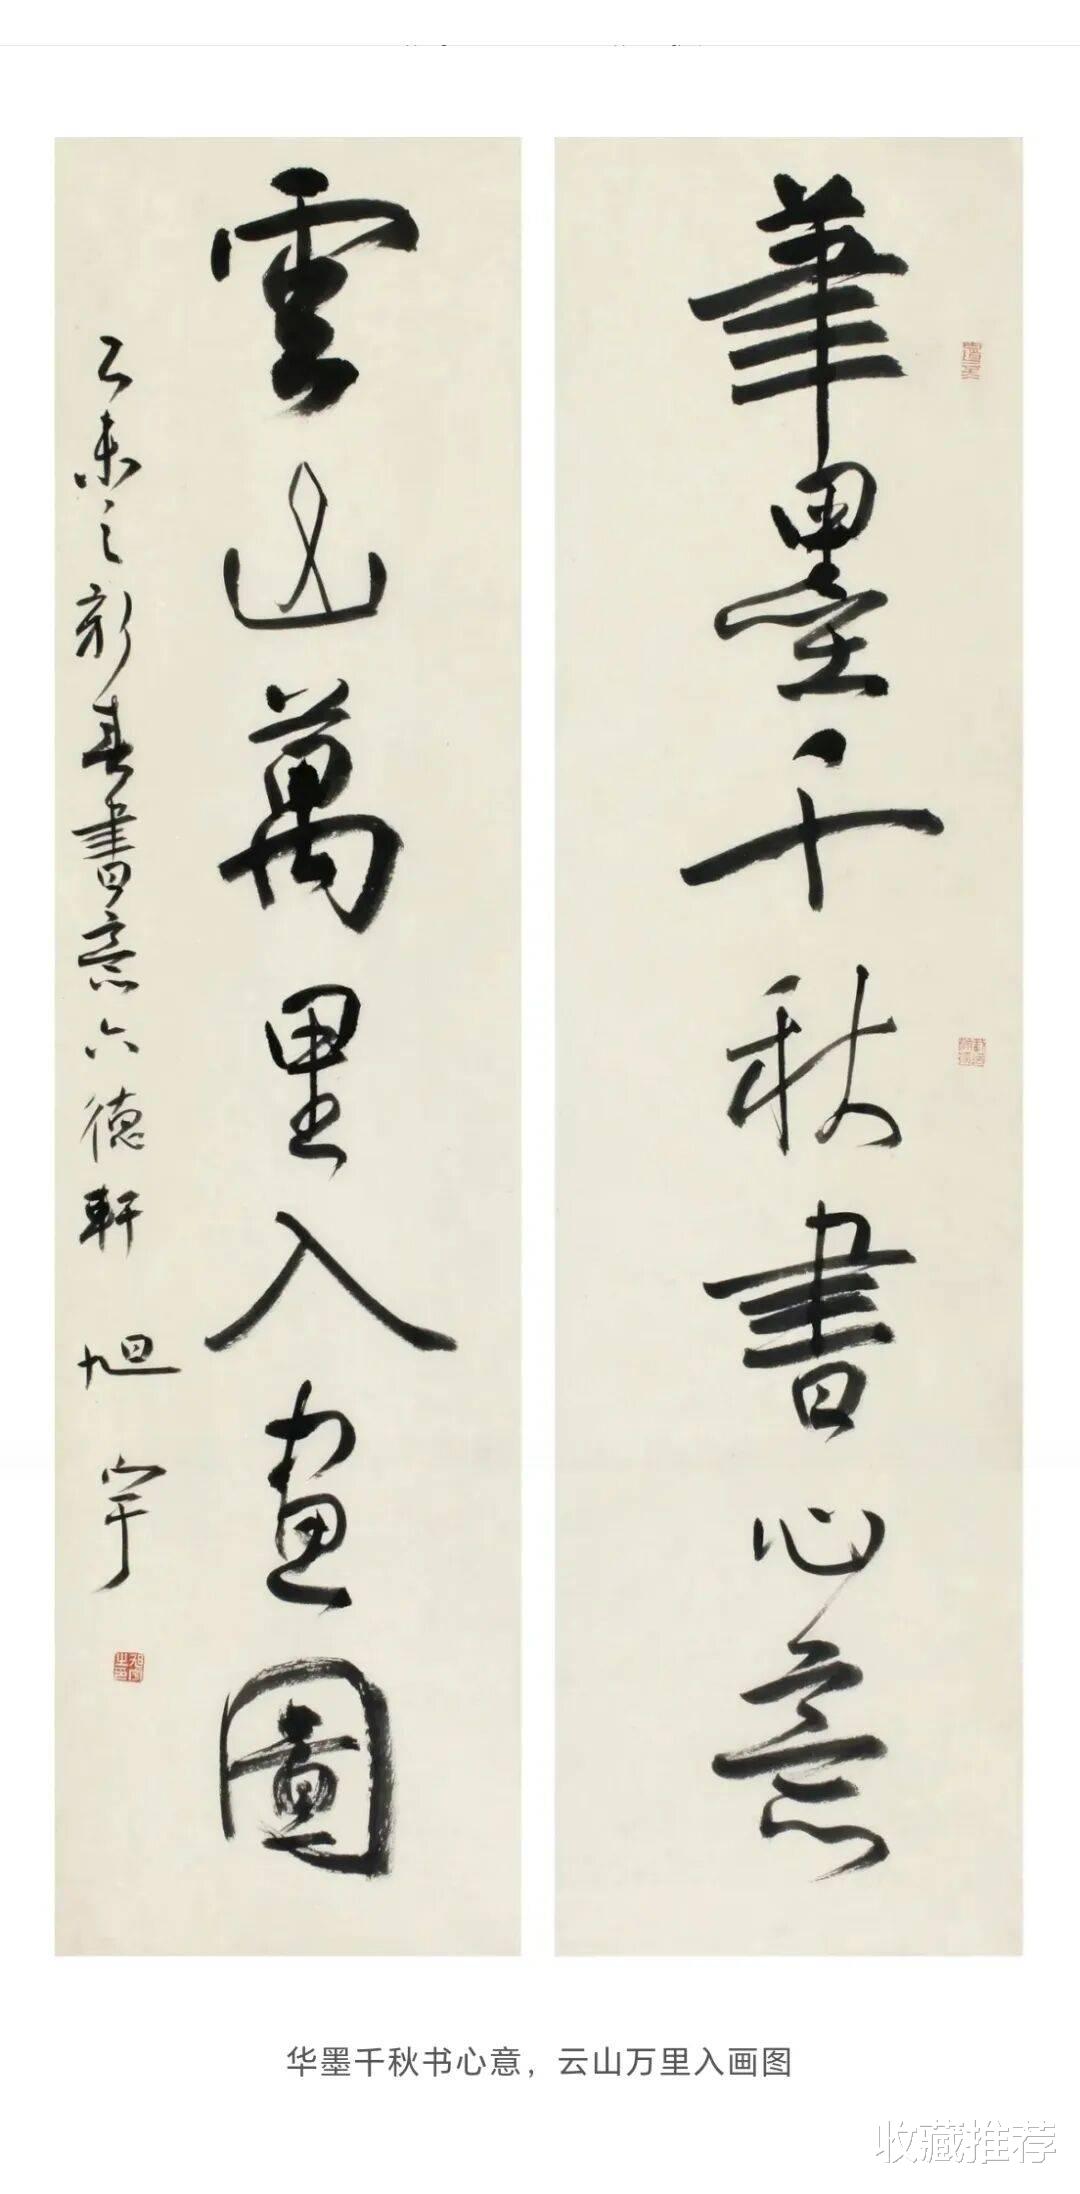 華墨千秋書心意
雲山萬里入畫圖
乙未之新春書意六德軒 旭宇
旭宇之印
华墨千秋书心意，云山万里入画图
收藏推荐